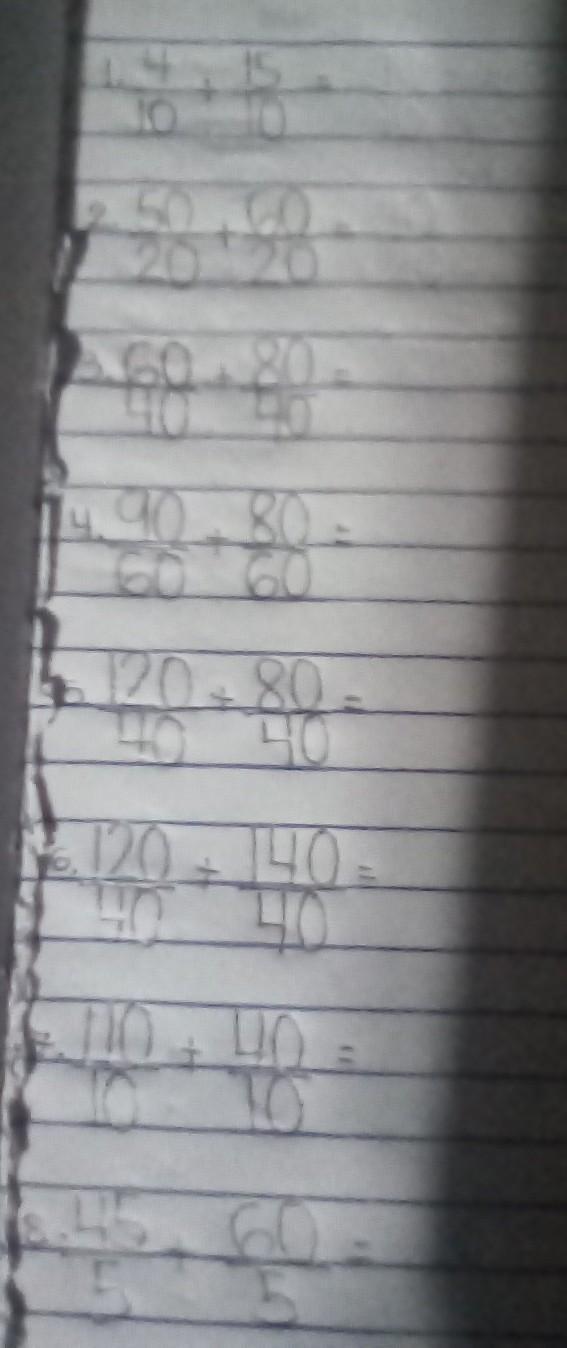 1. 4/10 + 15/10 =
2. 50/20 + 60/20 =
3. 60/40 + 80/40 =
4. 90/60 + 80/60 =
5. 120/40 + 80/40 =
6. 120/40 + 140/40 =
7. 110/10 + 40/10 =
8. 45/5 + 60/5 =